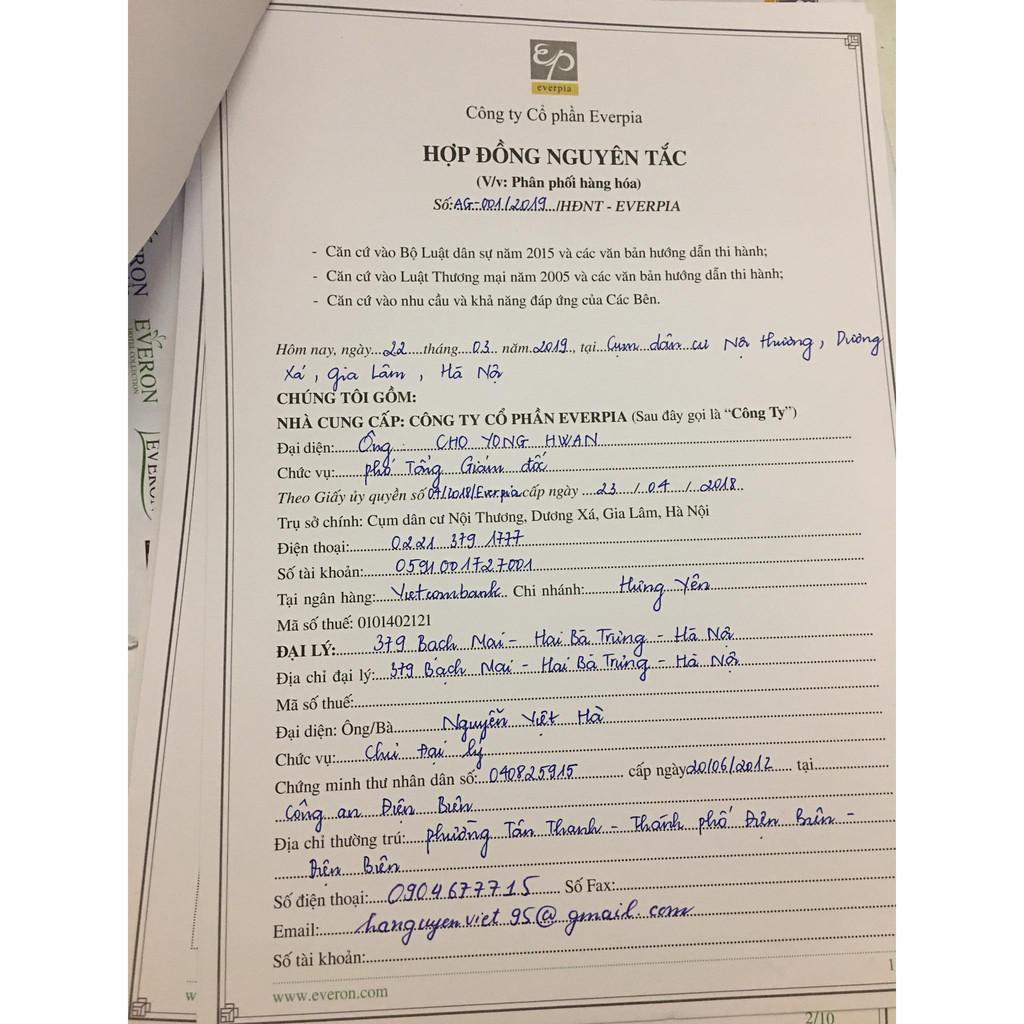 everpia
Công ty Cổ phần Everpia
HỢP ĐỒNG NGUYÊN TẮC
(V/v: Phân phối hàng hóa)
Số:AG-001/2019../HĐNT - EVERPIA
- Căn cứ vào Bộ Luật dân sự năm 2015 và các văn bản hướng dẫn thi hành;
- Căn cứ vào Luật Thương mại năm 2005 và các văn bản hướng dẫn thi hành;
- Căn cứ vào nhu cầu và khả năng đáp ứng của Các Bên.
Hôm nay, ngày...22....tháng...03.. năm.2019., tại...Cụm dân cư Nội Thương, Dương
Xá, Gia Lâm, Hà Nội
CHÚNG TÔI GỒM:
NHÀ CUNG CẤP: CÔNG TY CỔ PHẦN EVERPIA (Sau đây gọi là “Công Ty”)
Đại diện:....Ông : CHO YONG HWAN
Chức vụ:....phó Tổng Giám đốc
Theo Giấy ủy quyền số 04/2018/Everpia cấp ngày ...23.../...04.../...2018..
Trụ sở chính: Cụm dân cư Nội Thương, Dương Xá, Gia Lâm, Hà Nội
Điện thoại:....0221 379 1777
Số tài khoản:....0591001727001
Tại ngân hàng:...Vietcombank.. Chi nhánh:....Hưng Yên
Mã số thuế: 0101402121
ĐẠI LÝ:....379 Bạch Mai - Hai Bà Trưng - Hà Nội
Địa chỉ đại lý:...379 Bạch Mai - Hai Bà Trưng - Hà Nội
Mã số thuế:....
Đại diện: Ông/Bà....Nguyễn Việt Hà
Chức vụ:....Chủ Đại lý
Chứng minh thư nhân dân số:..040825915.... cấp ngày20/06/2012.... tại....
Công an Điện Biên
Địa chỉ thường trú:...phường Tân Thanh - Thành phố Điện Biên -
Điện Biên
Số điện thoại:...0904677715.... Số Fax:....
Email:....hanguyenviet95@gmail.com
Số tài khoản:....
www.everon.com
1
2/10
w
RON
EVERON
HOTEL COLLECTION
EVERON